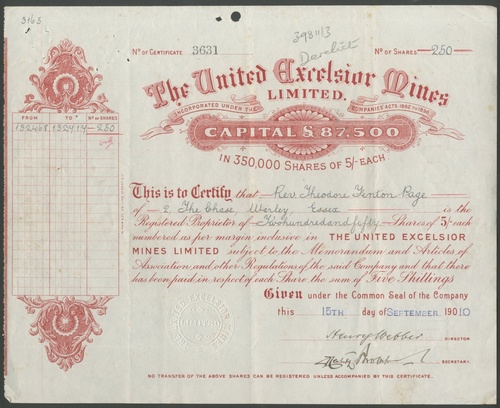 3163
39811/3
Derelict
No OF CERTIFICATE 3631
No OF SHARES 250
The United Excelsior Mines
LIMITED.
INCORPORATED UNDER THE COMPANIES' ACTS
CAPITAL £87,500
IN 350,000 SHARES OF 5/- EACH
FROM TO No OF SHARES
250
This is to Certify that Rev. Theodore Fenton Page
of 2 The Chase Warley Essex is the
Registered Proprietor of Two hundred and fifty Shares of 5/- each
numbered as per margin inclusive in THE UNITED EXCELSIOR
MINES LIMITED subject to the Memorandum and Articles of
Association, and other Regulations of the said Company and that there
has been paid in respect of each Share the sum of Five Shillings
Given under the Common Seal of the Company
this 15TH day of SEPTEMBER 1910
Henry Webber
DIRECTOR
SECRETARY.
NO TRANSFER OF THE ABOVE SHARES CAN BE REGISTERED UNLESS ACCOMPANIED BY THIS CERTIFICATE.